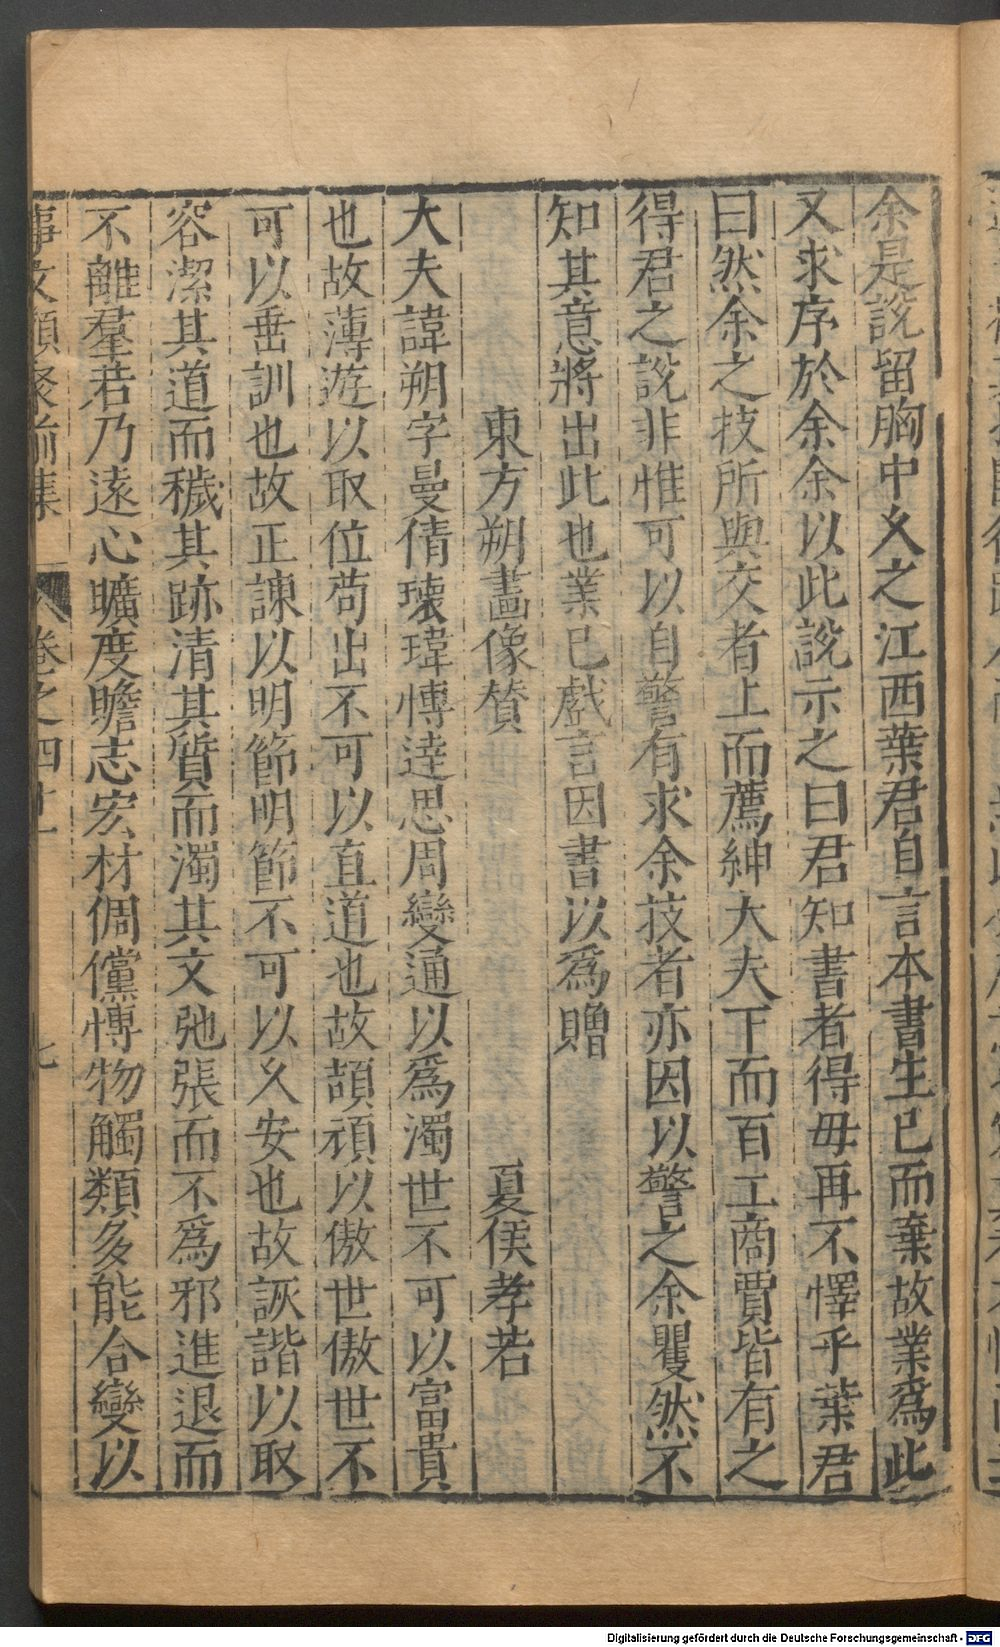 余是說留胸中乆之江西葉君自言本書生已而棄故業爲此
又求序於余余以此說示之曰君知書者得毋再不懌乎葉君
曰然余之技所與交者上而薦紳大夫下而百工商賈皆有之
得君之說非惟可以自警有求余技者亦因以警之余瞿然不
知其意將出此也業已戲言因書以爲贈
東方朔畫像贊 夏侯孝若
大夫諱朔字曼倩瓌瑋博達思周變通以爲濁世不可以富貴
也故薄遊以取位苟出不可以直道也故頡頏以傲世傲世不
可以垂訓也故正諫以明節明節不可以乆安也故詼諧以取
容潔其道而穢其跡清其質而濁其文弛張而不爲邪進退而
不離羣若乃遠心曠度贍志宏材倜儻博物觸類多能合變以
事文類聚前集 卷之四十一 七
Digitalisierung gefördert durch die Deutsche Forschungsgemeinschaft - DFG